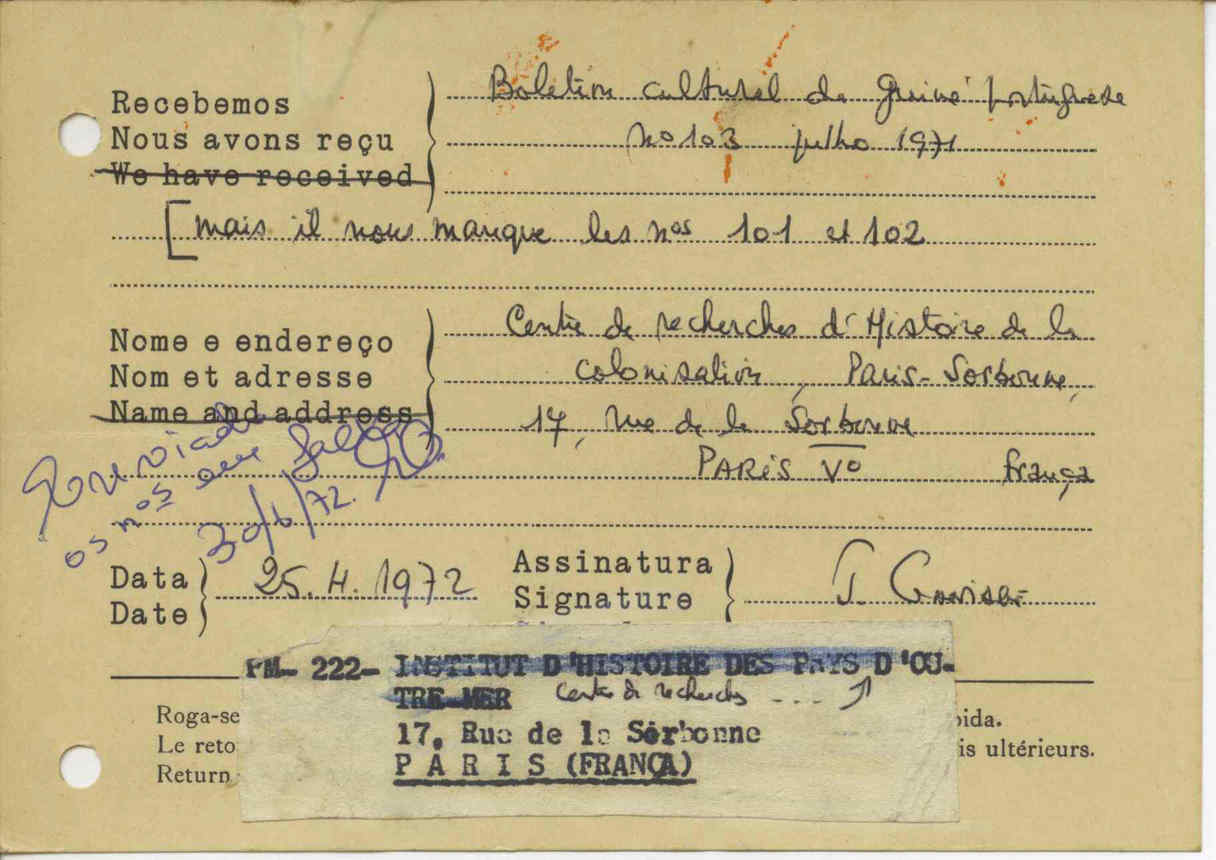 Recebemos
Nous avons reçu
We have received
Boletim cultural da Guiné portuguesa
nº 103 julho 1971
[mais il nous manque les nos 101 et 102
Nome e endereço
Nom et adresse
Name and address
Centre de recherches d'Histoire de la
colonisation, Paris-Sorbonne,
17, rue de la Sorbonne
PARIS Vº França
os nos que
30/6/72
Data
Date
25.4.1972
Assinatura
Signature
J.
PM- 222- INSTITUT D'HISTOIRE DES PAYS D'OU-
TRE-MER Centre de recherches ....
17, Rue de la Sorbonne
PARIS (FRANÇA)
Roga-se
Le reto
Return
pida.
is ultérieurs.